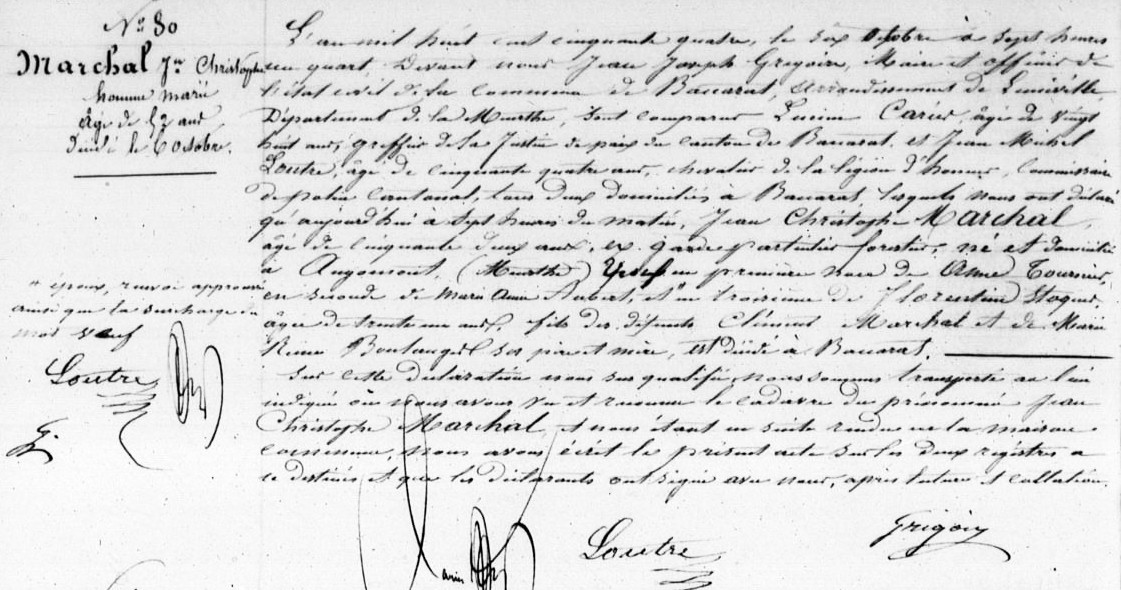 No 80
Marchal Jn Christophe
homme marié
âgé de 52 ans
Décédé le 6 octobre.
L'an mil huit cent cinquante quatre, le six octobre à sept heures
un quart, Devant nous Jean Joseph Grégoire, Maire et officier de
l'état civil de la commune de Baccarat, arrondissement de Lunéville
Département de la Meurthe, sont comparus Lucien Carier, âgé de vingt
huit ans, greffier de la Justice de paix du canton de Baccarat, et Jean Michel
Loutre, âgé de cinquante quatre ans, chevalier de la légion d'honneur, Commissaire
de police cantonal, tous deux domiciliés à Baccarat, lesquels nous ont déclaré
qu'aujourd'hui à sept heures du matin, Jean Christophe Marchal,
âgé de cinquante deux ans, ex garde particulier forestier, né et domicilié
à Angomont, (Meurthe) veuf en première noce de Anne Tournier,
en seconde de Marie Anne Aubert, et " en troisième de Florentine Stoquer,
âgée de trente un ans, fils des défunts Clément Marchal et de Marie
Reine Boulangé ses père et mère, est décédé à Baccarat.
Sur cette déclaration nous sus qualifié, nous sommes transporté au lieu
indiqué où nous avons vu et reconnu le cadavre du prénommé Jean
Christophe Marchal, et nous étant en suite rendu en la maison
commune, nous avons écrit le présent acte sur les deux régistres à
ce destinés et que les déclarants ont signé avec nous, après lecture et collation.
" époux, renvoi approuvé
ainsi que la surcharge du
mot veuf
Loutre
G.
Loutre
Grégoire